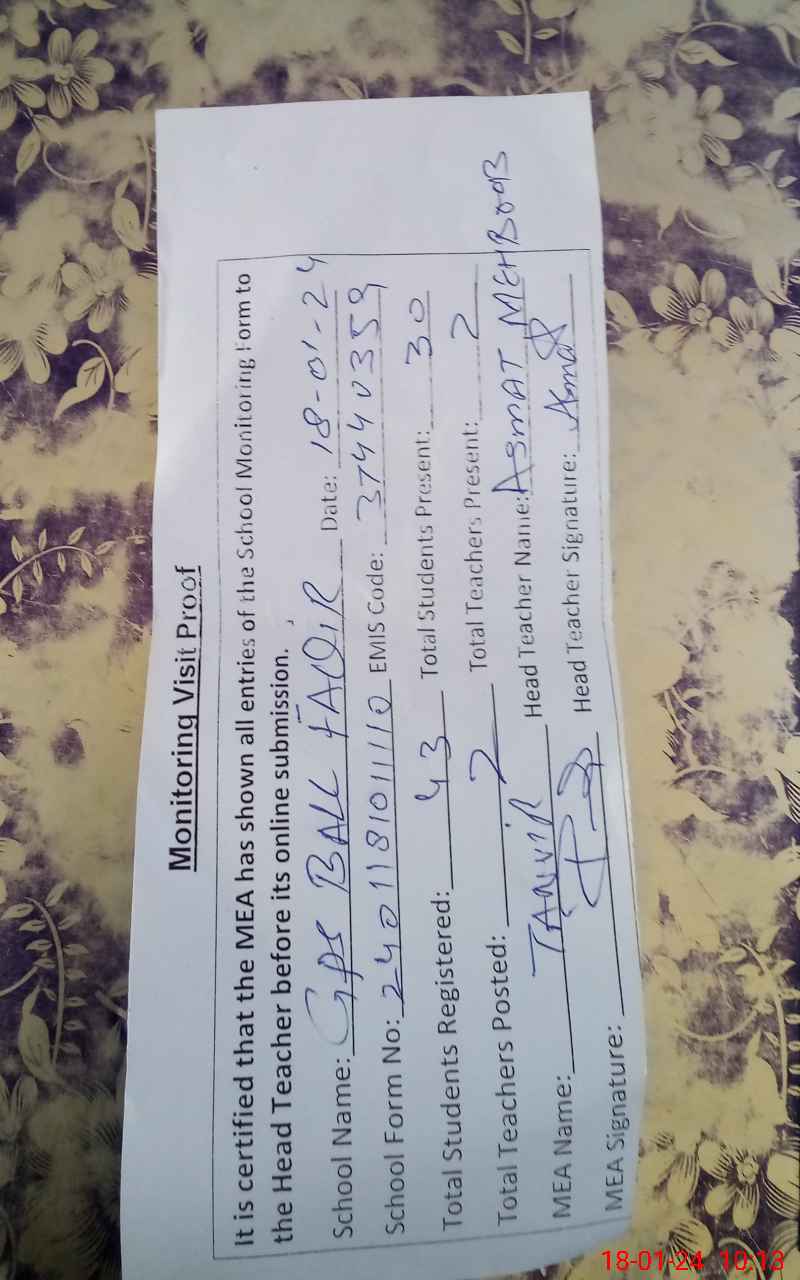 Monitoring Visit Proof
It is certified that the MEA has shown all entries of the School Monitoring Form to
the Head Teacher before its online submission.
School Name: GPS BALL FAQIR Date: 18-01-24
School Form No: 2401181011110 EMIS Code: 37440359
Total Students Registered: 43 Total Students Present: 30
Total Teachers Posted: 2 Total Teachers Present: 2
MEA Name: TANVIR Head Teacher Name: ASMAT MEHBOOB
MEA Signature: Head Teacher Signature: Asmat
18-01-24 10:13